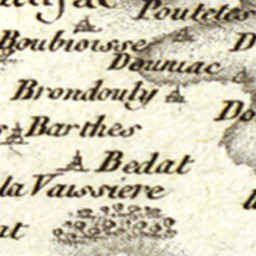 Poutetes
Boubiousse
Douniac
Brondouly
Do
Barthes
Bedat
la Vaissiere
at